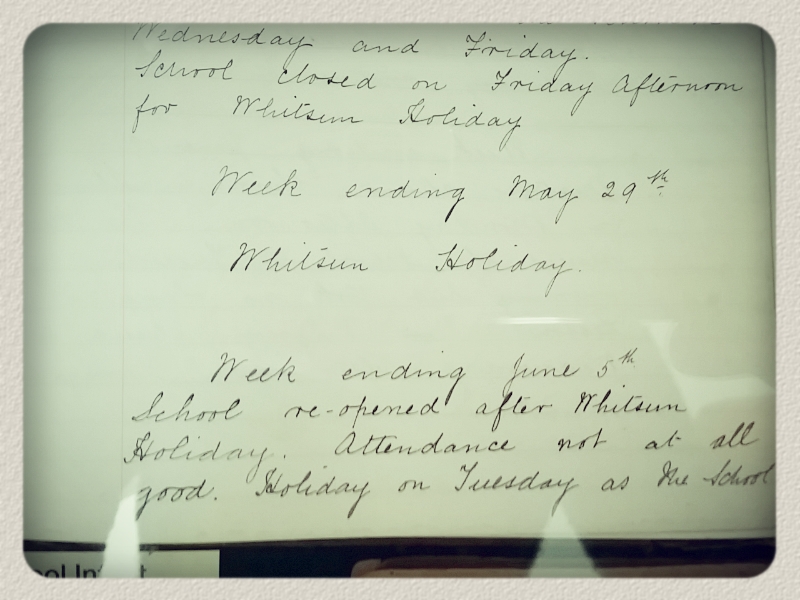 Wednesday and Friday.
School closed on Friday Afternoon
for Whitsun Holiday
Week ending May 29th
Whitsun Holiday.
Week ending June 5th
School re-opened after Whitsun
Holiday. Attendance not at all
good. Holiday on Tuesday as the School